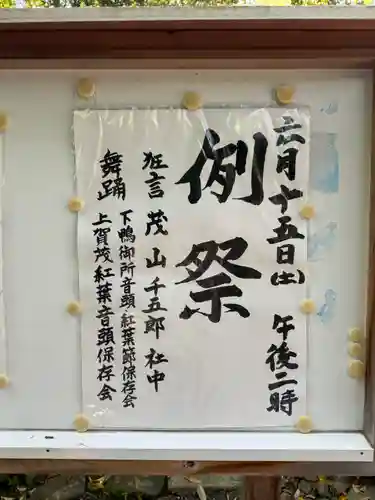 六月十五日(土) 午後二時
例祭
狂言 茂山千五郎社中
舞踊 下鴨御所音頭・紅葉節保存会
上賀茂紅葉音頭保存会